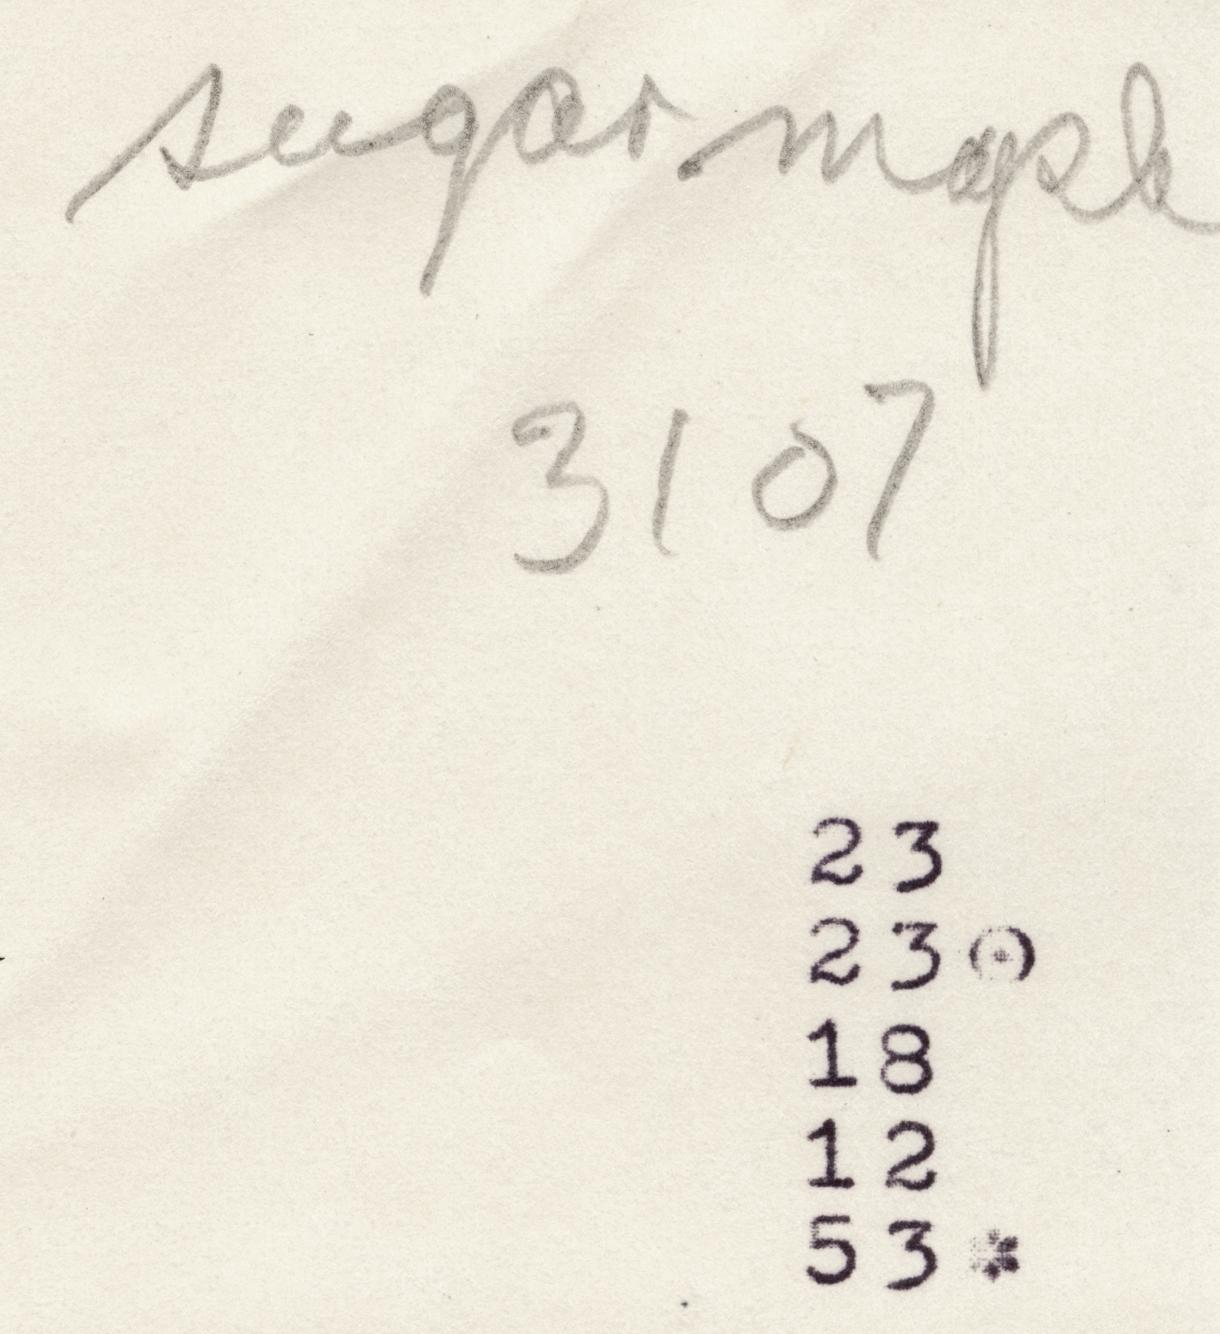 sugar maple
3107
23
23⊙
18
12
53*